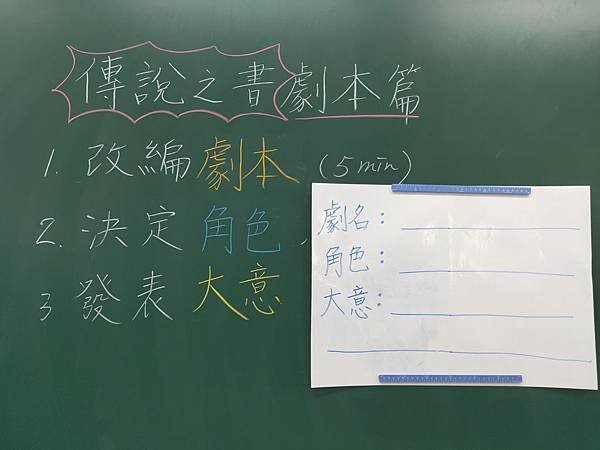 傳說之書劇本篇
1. 改編劇本 (5min)
2. 決定角色
3 發表大意
劇名：
角色：
大意：